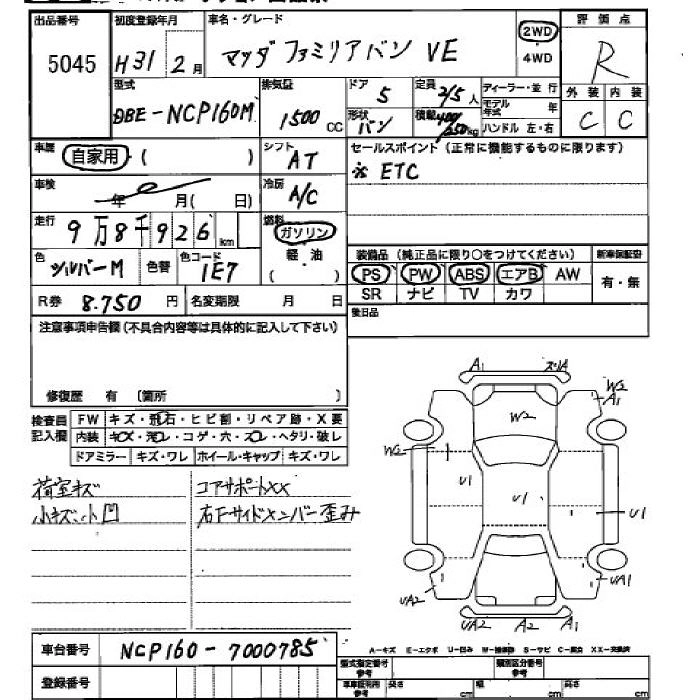 出品番号 初度登録年月 車名・グレード 評価点
5045 H31 2月 マツダ ファミリアバン VE 2WD 4WD R
型式 排気量 ドア 定員 ディーラー・並行 外装 内装
DBE-NCP160M 1500cc 5 2/5人 モデル年式 年 C C
形状 バン 積載 400/250kg ハンドル 左・右
車歴 自家用 ( ) シフト AT セールスポイント (正常に機能するものに限ります)
※ ETC
車検 年 月( 日) 冷房 A/C
走行 9万8千926km 燃料 ガソリン 軽油 ( )
色 シルバーM 色替 色コード 1E7
装備品 (純正品に限り○をつけてください) 新車保証書
PS PW ABS エアB AW 有・無
SR ナビ TV カワ
R券 8.750円 名変期限 月 日
後日品
注意事項申告欄 (不具合内容等は具体的に記入して下さい)
修復歴 有 〔箇所 〕
検査員記入欄 FW キズ・飛石・ヒビ割・リペア跡・X要
内装 キズ・汚レ・コゲ・穴・スレ・ヘタリ・破レ
ドアミラー キズ・ワレ ホイール・キャップ キズ・ワレ
荷室キズ コアサポートXX
小キズ、小凹 右Fサイドメンバー歪み
A1 ズリA
W2 W2 A1
W2
U1 U1 U1
UA2 UA1
UA2 A2 A1
車台番号 NCP160-7000785
登録番号
A-キズ E-エクボ U-凹み W-補修跡 S-サビ C-腐食 XX-交換済
型式指定番号 参考 類別区分番号 参考
車車証利用 参考 長さ cm 幅 cm 高さ cm